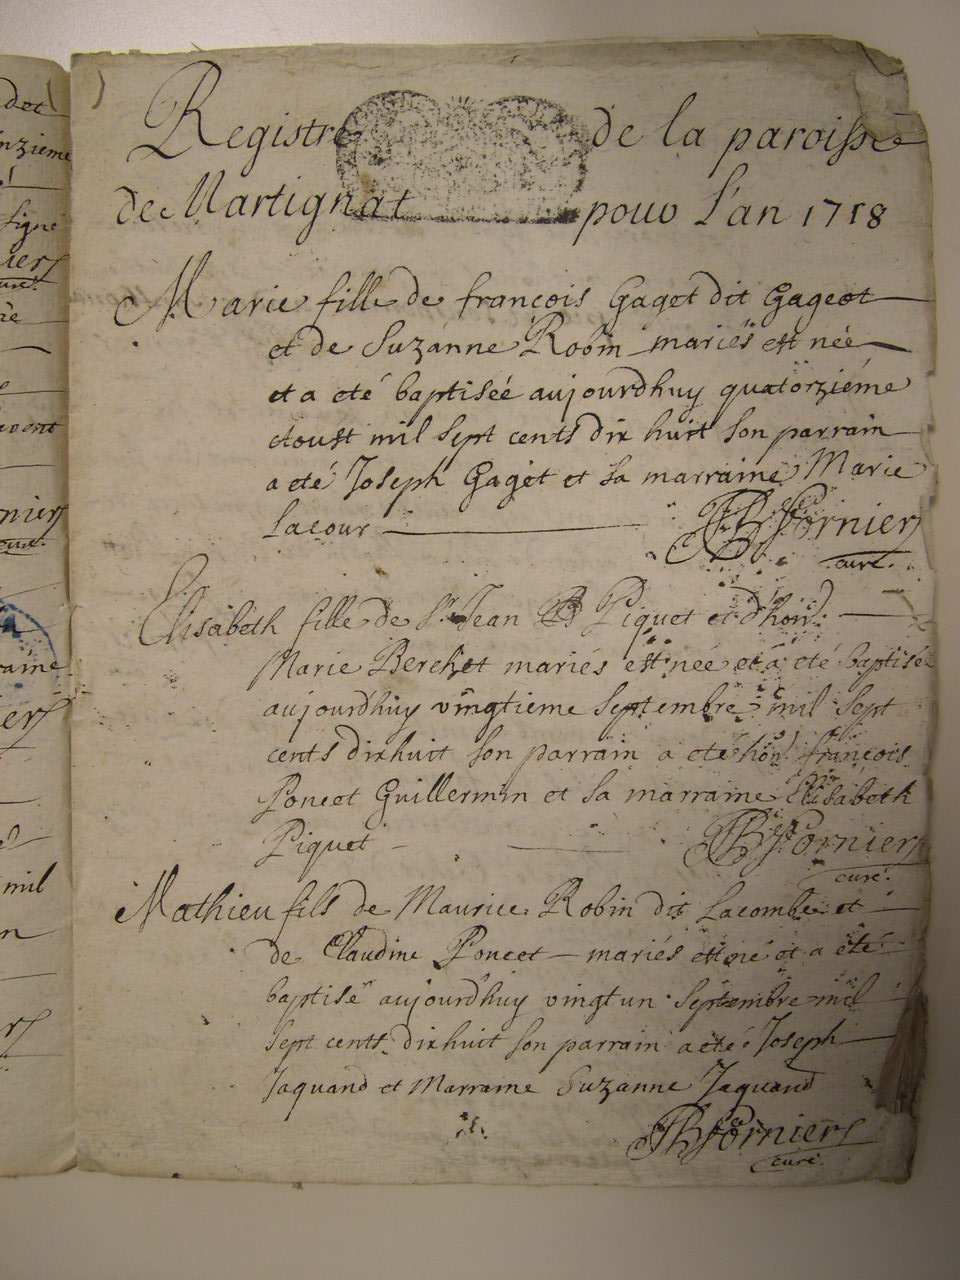 Registre de la paroisse
de Martignat pour l'an 1718
Marie fille de françois Gaget dit Gageot
et de Suzanne Robin mariés est née
et a eté baptisée aujourdhuy quatorziéme
doust mil sept cents dix huit son parrain
a eté Joseph Gaget et sa marraine Marie
Lacour
Fornier
curé.
Elisabeth fille de Sr. Jean B Piquet et d'hon.
Marie Berchet mariés est née et a eté baptisé
aujourdhuy vingtieme septembre mil sept
cents dixhuit son parrain a eté hon. françois
Poncet Guillermin et sa marraine Elisabeth
Piquet
Fornier
curé.
Mathieu fils de Maurice Robin dit Lacombe et
de Claudine Poncet mariés est né et a eté
baptisé aujourdhuy vingt un septembre mil
sept cents dixhuit son parrain a eté Joseph
Jaquand et Marraine Suzanne Jaquand
Fornier
curé.
det
nzieme
signé
niers
curé.
niers
curé.
raine
mil